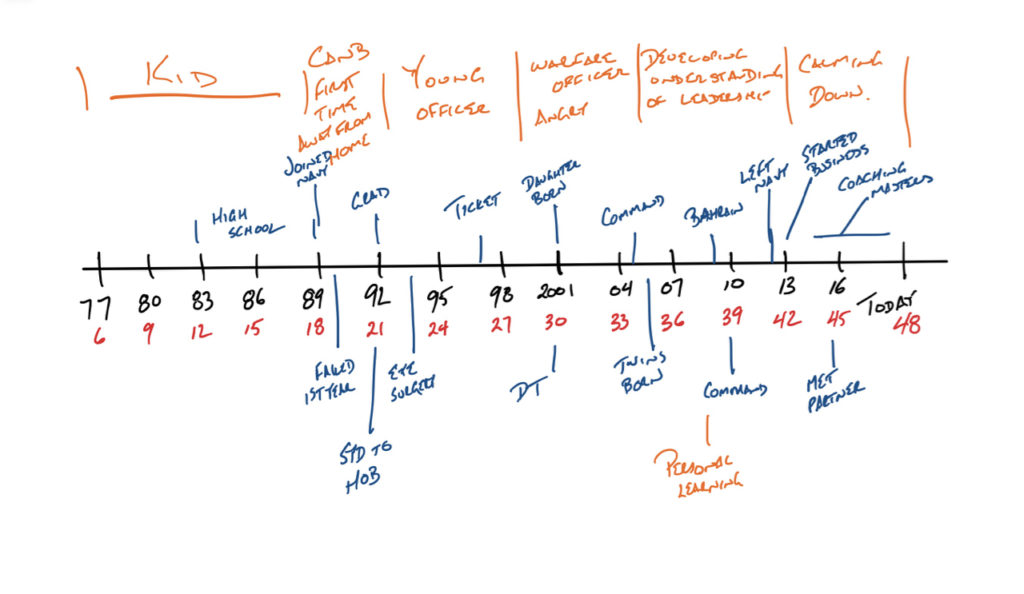 KID
CANB
FIRST
TIME
AWAY FROM
HOME
YOUNG
OFFICER
WARFARE
OFFICER
ANGRY
DEVELOPING
UNDERSTANDING
OF LEADERSHIP
CALMING
DOWN.
HIGH
SCHOOL
JOINED
NAVY
GRAD
TICKET
DAUGHTER
BORN
COMMAND
BAHRAIN
LEFT
NAVY
STARTED
BUSINESS
COACHING
MASTERS
77 80 83 86 89 92 95 98 2001 04 07 10 13 16 TODAY
6 9 12 15 18 21 24 27 30 33 36 39 42 45 48
FAILED
1ST YEAR
STD TO
HOB
EYE
SURGERY
DT
TWINS
BORN
COMMAND
MET
PARTNER
PERSONAL
LEARNING